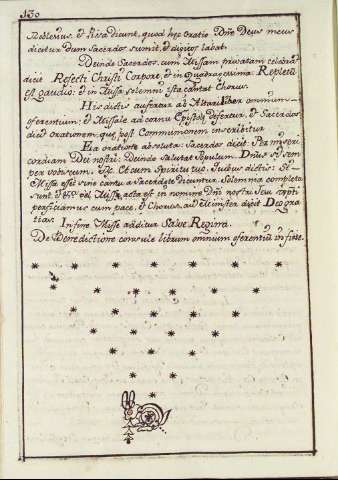 130
et Riba dicunt, quod hęc Oratio Dñe Deus meus
dicitur dum Sacerdos sumit, et digitos labat.
Deinde Sacerdos, cum Missam privatam celebrat
dicit Refecti Christi Corpore, et in Quadragessima: Repleti
est gaudio; et in Missa solemni ista cantat Chorus.
His dictis aufertur ab Altari Liber omnium
oferentium; et Missale ad cornu Epistolę defertur, et Sacerdos
dicit orationem, quę post Communionem inscribitur.
Ea oratione absoluta: Sacerdos dicit. Per miseri
cordiam Dei nostri: Deinde salutat Populum. Dñus sit sem
per vobiscum. Et cum Spiritu tuo. Quibus dictis: Si
Missa est sine cantu a Sacerdote dicuntur. Solemnia completa
sunt. Missa acta est in nomine Dñi nostri Jesu Xpti
perficiamus cum pace. et Chorus, aut Minister dicit Deo gra
tias.
In fine Missę additur Salve Regina.
De Benedictione consule librum omnium oferentiũ in fine.